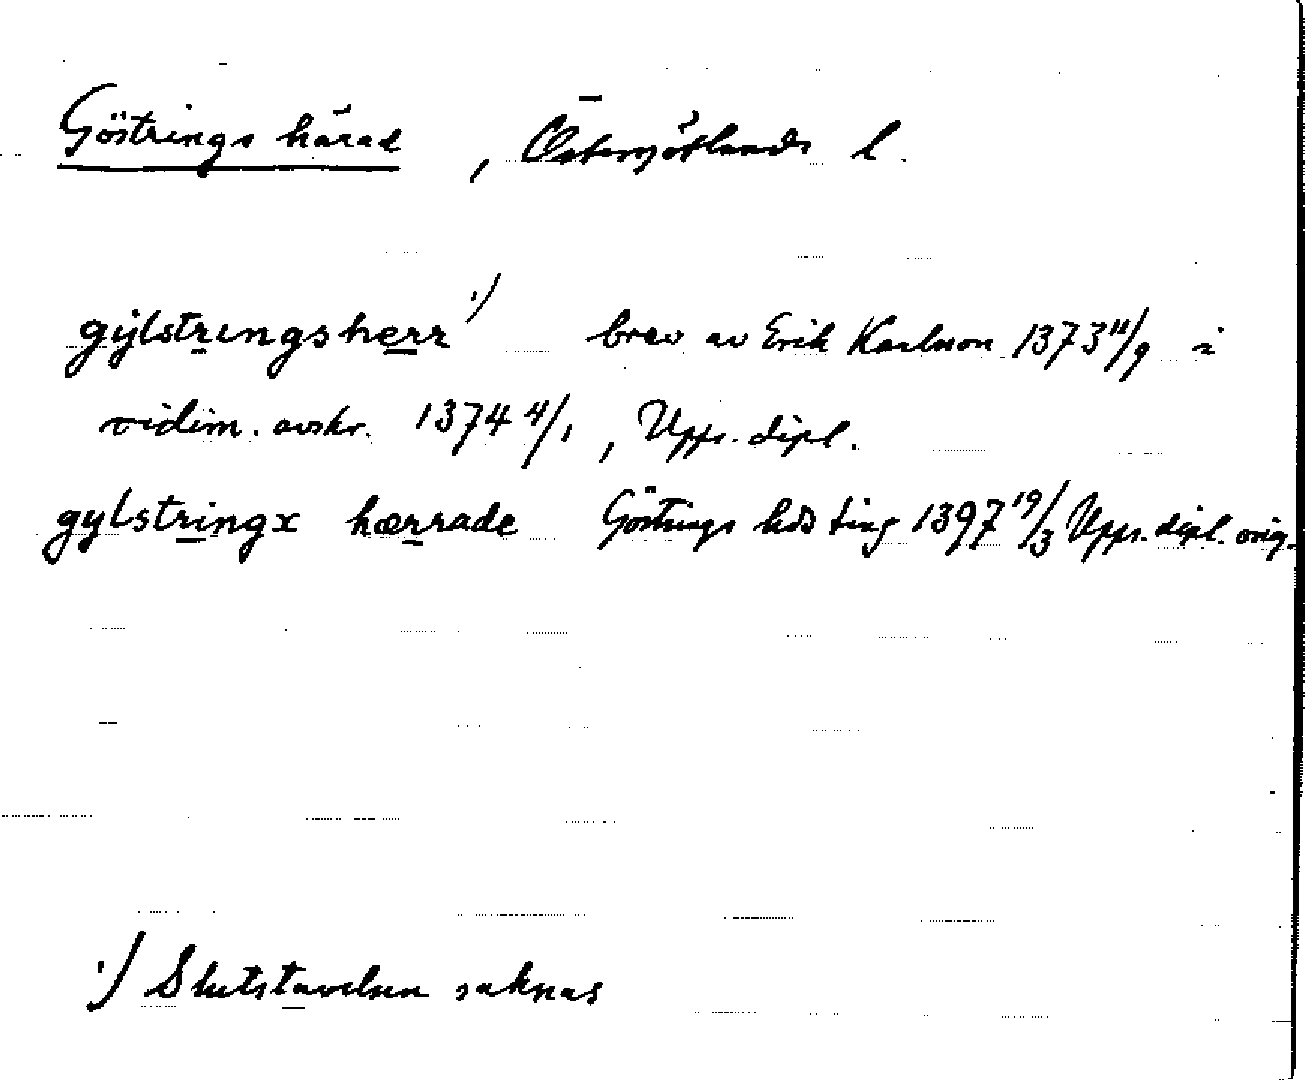 Göstrings härad , Östergötlands l.
gÿlstringsherr ¹/ brev av Erik Karlsson 1373 11/9 i
vidim. avskr. 1374 4/1 , Upps. dipl.
gylstringx hærrade Göstrings hds ting 1397 19/3 Upps. dipl. orig.
¹/ Slutstavelsen saknas